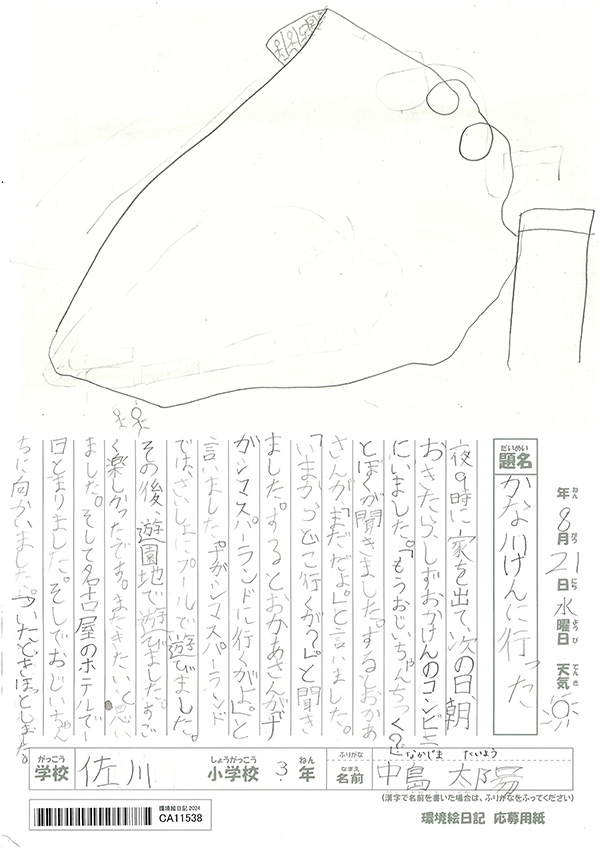 年 8月21日 水曜日 天気
ねん がつ にち ようび てんき
だいめい
題名
かな川けんに行った
夜9時に家を出て、次の日、朝
おきたら、しずおかけんのコンビニ
にいました。「もうおじいちゃんちつく?」
とぼくが聞きました。するとおかあ
さんが「まだだよ。」と言いました。
「いまからどこ行くが?」と聞き
ました。するとおかあさんが「ナ
ガシマスパーランドに行くがよ。」と
言いました。ナガシマスパーランド
では、さいしょにプールで遊びました。
その後、遊園地で遊びました。すご
く楽しかったです。またきたいと思い
ました。そして名古屋のホテルで一
日とまりました。そしておじいちゃん
ちに向かいました。ついたときほっとしました。
がっこう
学校
佐川
しょうがっこう
小学校
3
ねん
年
ふりがな
なまえ
名前
なかじま たいよう
中島 太陽
(漢字で名前を書いた場合は、ふりがなをふってください)
環境絵日記 2024
CA11538
環境絵日記 応募用紙